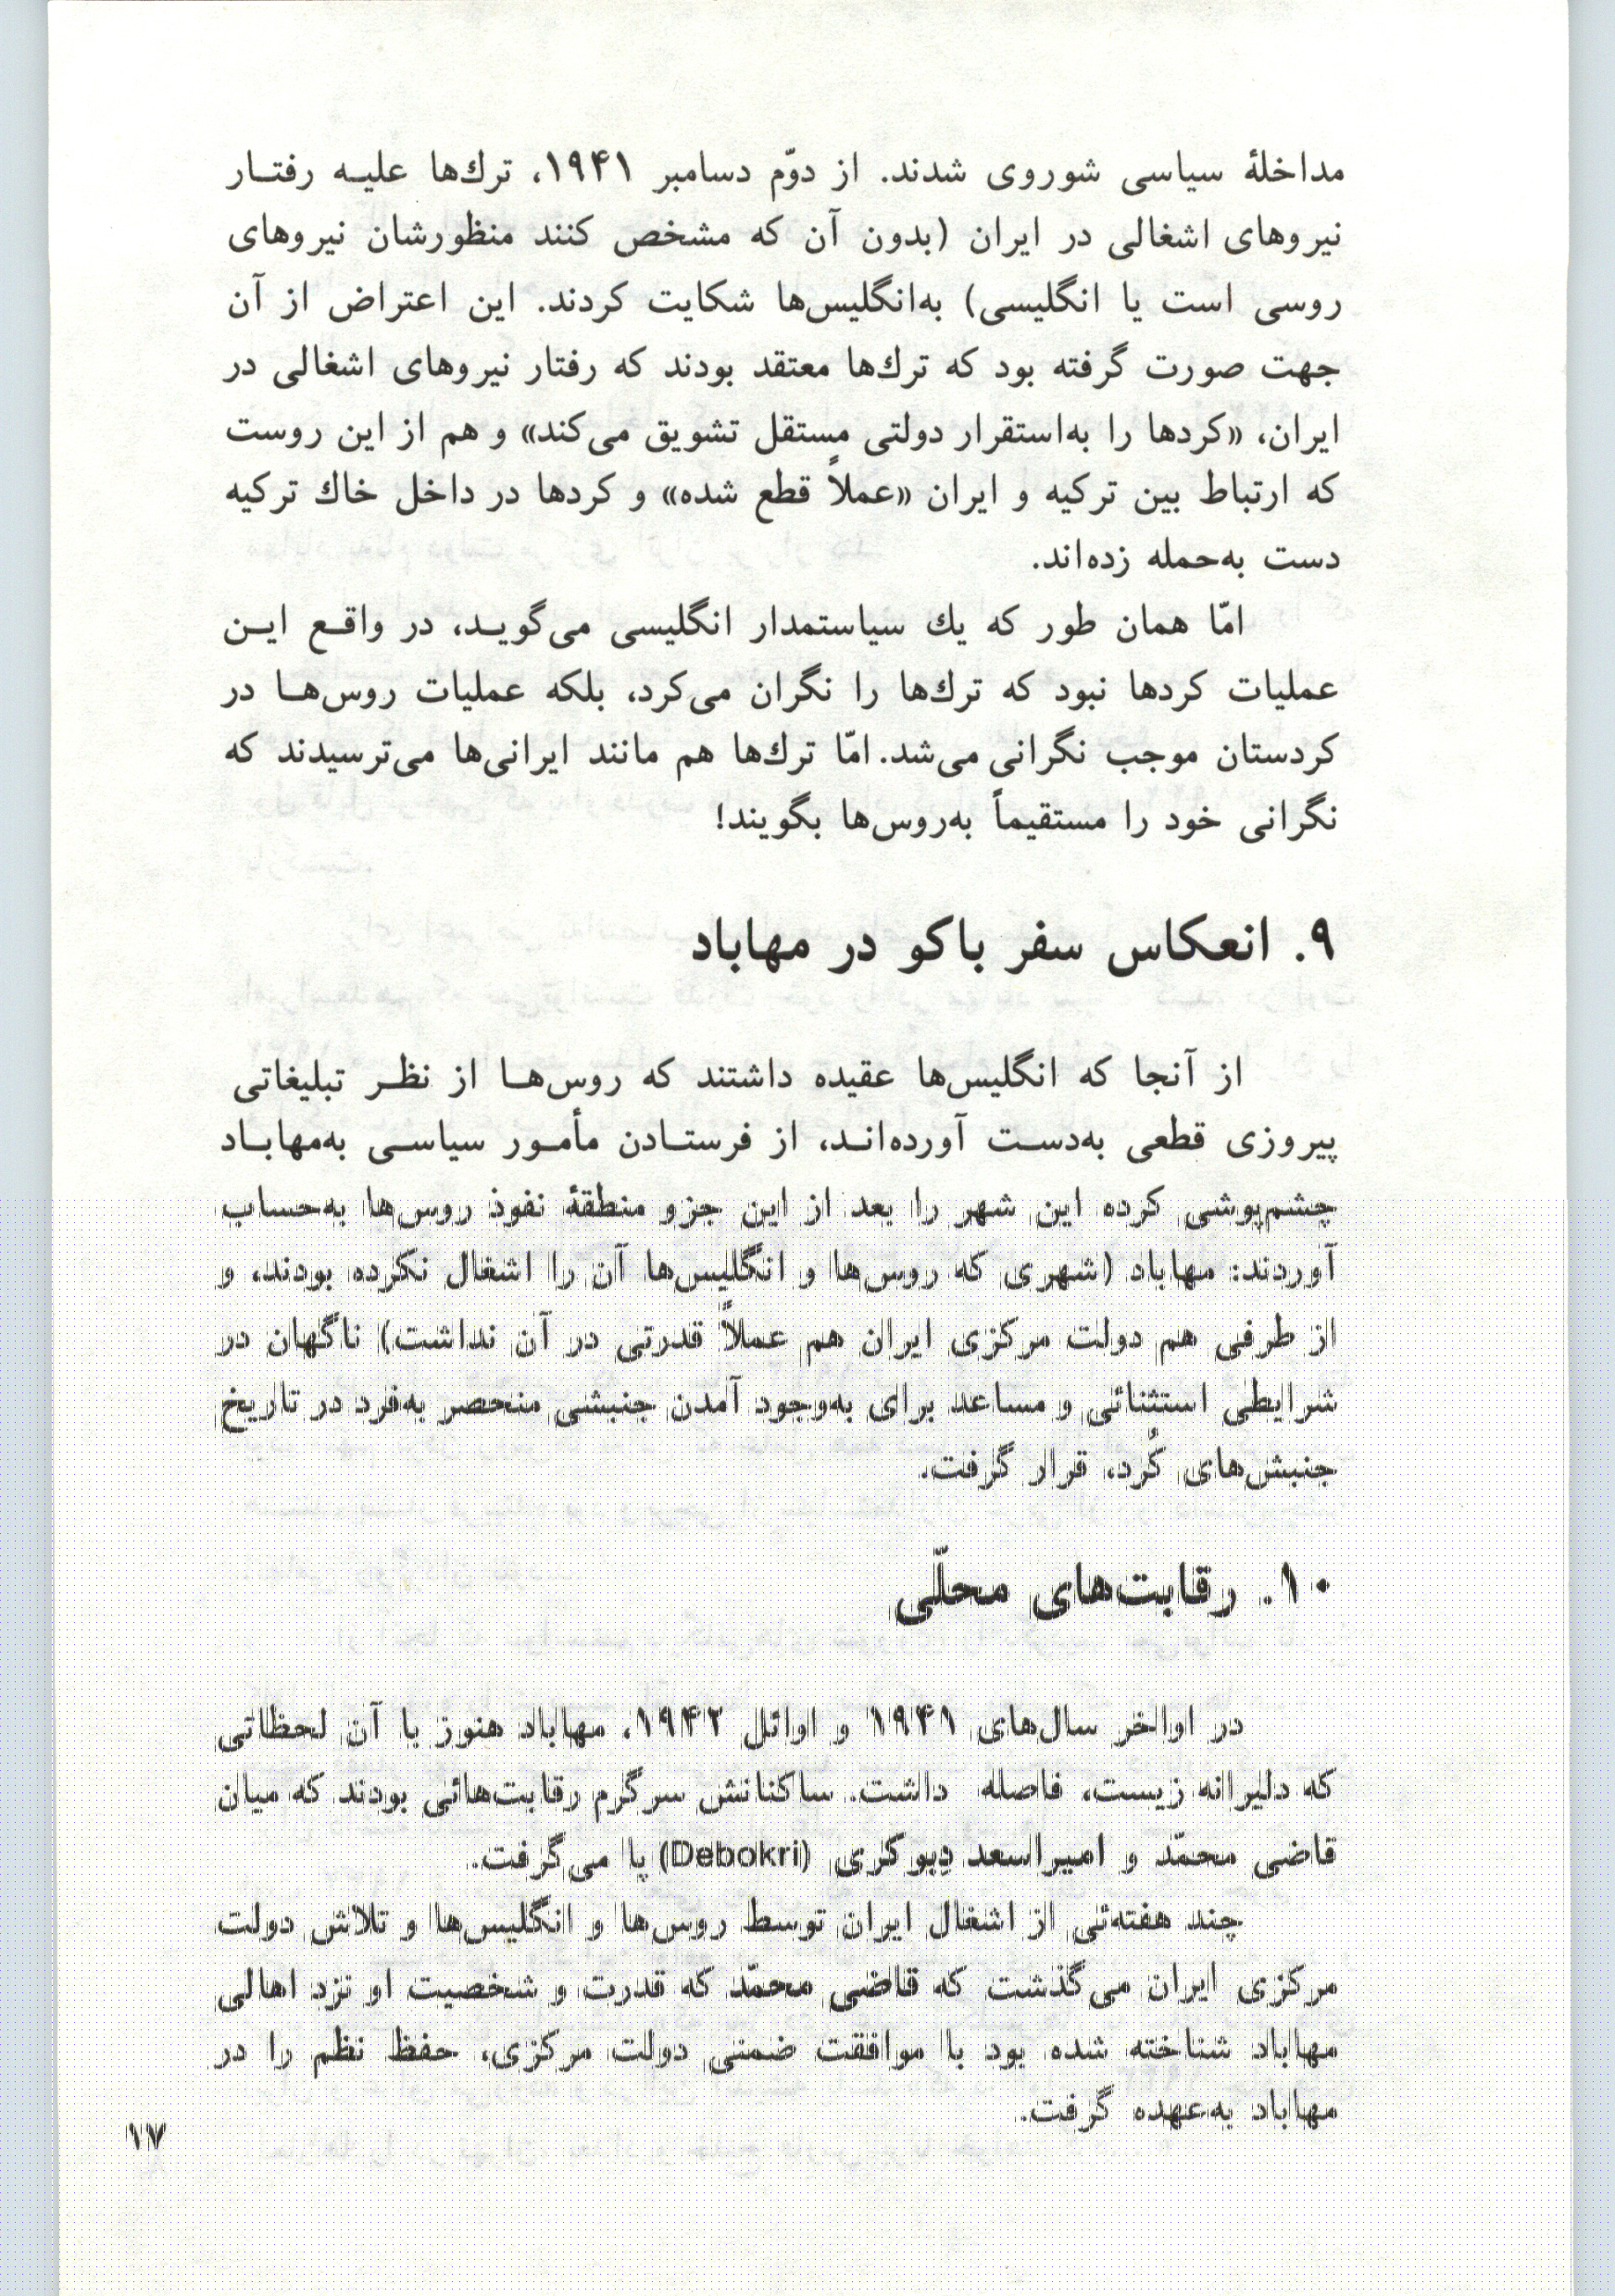 مداخلهٔ سیاسی شوروی شدند. از دوّم دسامبر ۱۹۴۱، ترك‌ها علیه رفتار
نیروهای اشغالی در ایران (بدون آن که مشخص کنند منظورشان نیروهای
روسی است یا انگلیسی) به‌انگلیس‌ها شکایت کردند. این اعتراض از آن
جهت صورت گرفته بود که ترك‌ها معتقد بودند که رفتار نیروهای اشغالی در
ایران، «کردها را به‌استقرار دولتی مستقل تشویق می‌کند» و هم از این روست
که ارتباط بین ترکیه و ایران «عملاً قطع شده» و کردها در داخل خاك ترکیه
دست به‌حمله زده‌اند.
امّا همان طور که یك سیاستمدار انگلیسی می‌گوید، در واقع این
عملیات کردها نبود که ترك‌ها را نگران می‌کرد، بلکه عملیات روس‌ها در
کردستان موجب نگرانی می‌شد. امّا ترك‌ها هم مانند ایرانی‌ها می‌ترسیدند که
نگرانی خود را مستقیماً به‌روس‌ها بگویند!
۹. انعکاس سفر باکو در مهاباد
از آنجا که انگلیس‌ها عقیده داشتند که روس‌ها از نظر تبلیغاتی
پیروزی قطعی به‌دست آورده‌اند، از فرستادن مأمور سیاسی به‌مهاباد
چشم‌پوشی کرده این شهر را بعد از این جزو منطقهٔ نفوذ روس‌ها به‌حساب
آوردند: مهاباد (شهری که روس‌ها و انگلیس‌ها آن را اشغال نکرده بودند، و
از طرفی هم دولت مرکزی ایران هم عملاً قدرتی در آن نداشت) ناگهان در
شرایطی استثنائی و مساعد برای به‌وجود آمدن جنبشی منحصر به‌فرد در تاریخ
جنبش‌های کُرد، قرار گرفت.
۱۰. رقابت‌های محلّی
در اواخر سال‌های ۱۹۴۱ و اوائل ۱۹۴۲، مهاباد هنوز با آن لحظاتی
که دلیرانه زیست، فاصله داشت. ساکنانش سرگرم رقابت‌هائی بودند که میان
قاضی محمّد و امیراسعد دِبوکری (Debokri) پا می‌گرفت.
چند هفته‌ئی از اشغال ایران توسط روس‌ها و انگلیس‌ها و تلاش دولت
مرکزی ایران می‌گذشت که قاضی محمّد که قدرت و شخصیت او نزد اهالی
مهاباد شناخته شده بود با موافقت ضمنی دولت مرکزی، حفظ نظم را در
مهاباد به‌عهده گرفت.
۱۷